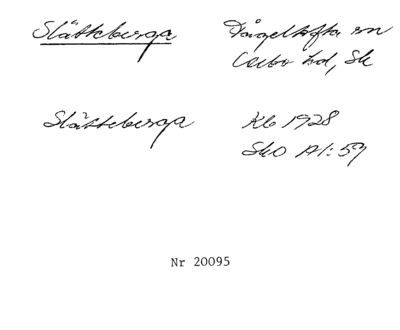 Slätteberga
Fågeltofta sn
Albo hd, Sk
Slätteberga
Kb 1928
SkO A1:59
Nr 20095